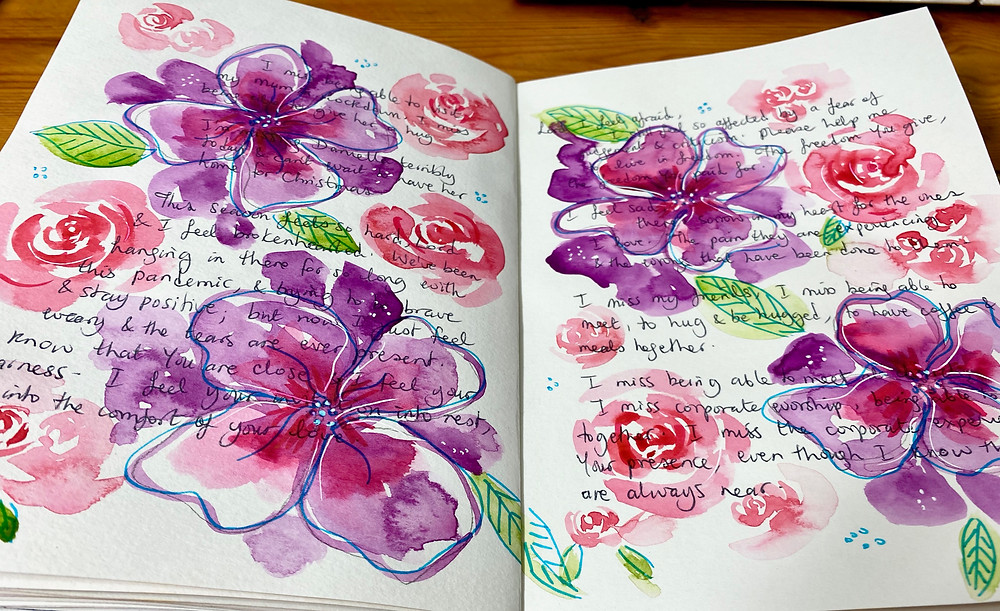 I miss being able to visit
my mum
being lockdown. I miss
give her a hug
I'm
today & Danielle terribly
& can't wait have her
home for Christmas
This season feels so hard, Lord
& I feel brokenhearted. We've been
hanging in there for so long with
this pandemic, & trying to be brave
& stay positive, but now I just feel
weary & the tears are ever present.
know that You are close, I feel your
I feel your on into rest,
into the comfort of your love
I feel afraid,
so affected by a fear of
& criticism. Please help me
live in freedom. The freedom You give,
the freedom paid for
I feel sad, sorrow in my heart for the ones
I love, the pain they are experiencing
& the that have been done to them
I miss my friends, I miss being able to
meet, to hug & be hugged, to have coffee &
meals together.
I miss being able to meet
I miss corporate worship, being able
together. I miss the corporate
Your presence, even though I know
are always near